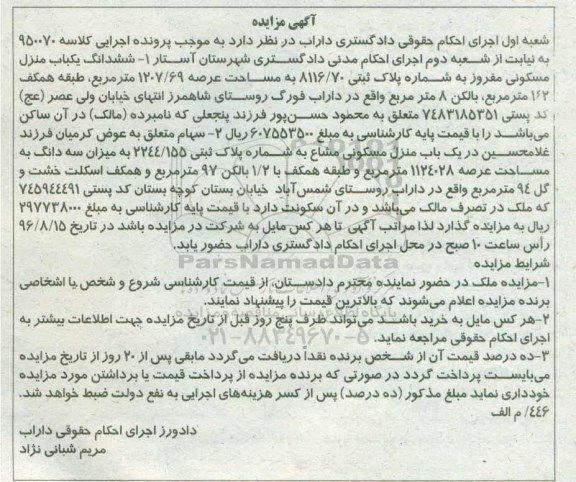 آگهی مزایده
شعبه اول اجرای احکام حقوقی دادگستری داراب در نظر دارد به موجب پرونده اجرایی کلاسه ۹۵۰۰۷۰
به نیابت از شعبه دوم اجرای احکام مدنی دادگستری شهرستان آستار ۱- ششدانگ یکباب منزل
مسکونی مفروز به شماره پلاک ثبتی ۸۱۱۶/۷۰ به مساحت عرصه ۱۲۰۷/۶۹ مترمربع، طبقه همکف
۱۶۲ مترمربع، بالکن ۸ متر مربع واقع در داراب فورگ روستای شاهمرز انتهای خیابان ولی عصر (عج)
کد پستی ۷۴۸۳۱۸۵۳۵۱ متعلق به محمود حسن‌پور فرزند پنجعلی که نامبرده (مالک) در آن ساکن
می‌باشد را با قیمت پایه کارشناسی به مبلغ ۶۰۷۵۵۳۵۰۰ ریال ۲- سهام متعلق به عوض کرمیان فرزند
غلامحسین در یک باب منزل مسکونی مشاع به شماره پلاک ثبتی ۲۲۴۴/۱۵۵ به میزان سه دانگ به
مساحت عرصه ۱۱۲۴۰۲۸ مترمربع و طبقه همکف با ۱/۲ بالکن ۹۷ مترمربع و همکف اسکلت خشت و
گل ۹۴ مترمربع واقع در داراب روستای شمس‌آباد خیابان بستان کوچه بستان کد پستی ۷۴۵۹۴۴۴۹۱
که ملک در تصرف مالک می‌باشند و در آن سکونت دارد با قیمت پایه کارشناسی به مبلغ ۲۹۷۷۳۸۰۰۰
ریال به مزایده گذارد لذا مراتب آگهی تا هر کس مایل به شرکت در مزایده باشد در تاریخ ۹۶/۸/۱۵
رأس ساعت ۱۰ صبح در محل اجرای احکام دادگستری داراب حضور یابد.
ParsNamadData
شرایط مزایده
۱-مزایده ملک در حضور نماینده محترم دادستان، از قیمت کارشناسی شروع و شخص یا اشخاصی
برنده مزایده اعلام می‌شوند که بالاترین قیمت را پیشنهاد نمایند.
۲-هر کس مایل به خرید باشد می‌تواند ظرف پنج روز قبل از تاریخ مزایده جهت اطلاعات بیشتر به
اجرای احکام حقوقی مراجعه نماید.
۰۲۱-۸۸۳۴۹۶۷۰-۵
۳-ده درصد قیمت آن از شخص برنده نقداً دریافت می‌گردد مابقی پس از ۲۰ روز از تاریخ مزایده
می‌بایست پرداخت گردد در صورتی که برنده مزایده از پرداخت قیمت یا برداشتن مورد مزایده
خودداری نماید مبلغ مذکور (ده درصد) پس از کسر هزینه‌های اجرایی به نفع دولت ضبط خواهد شد.
۴۴۶/ م الف
دادورز اجرای احکام حقوقی داراب
مریم شبانی نژاد